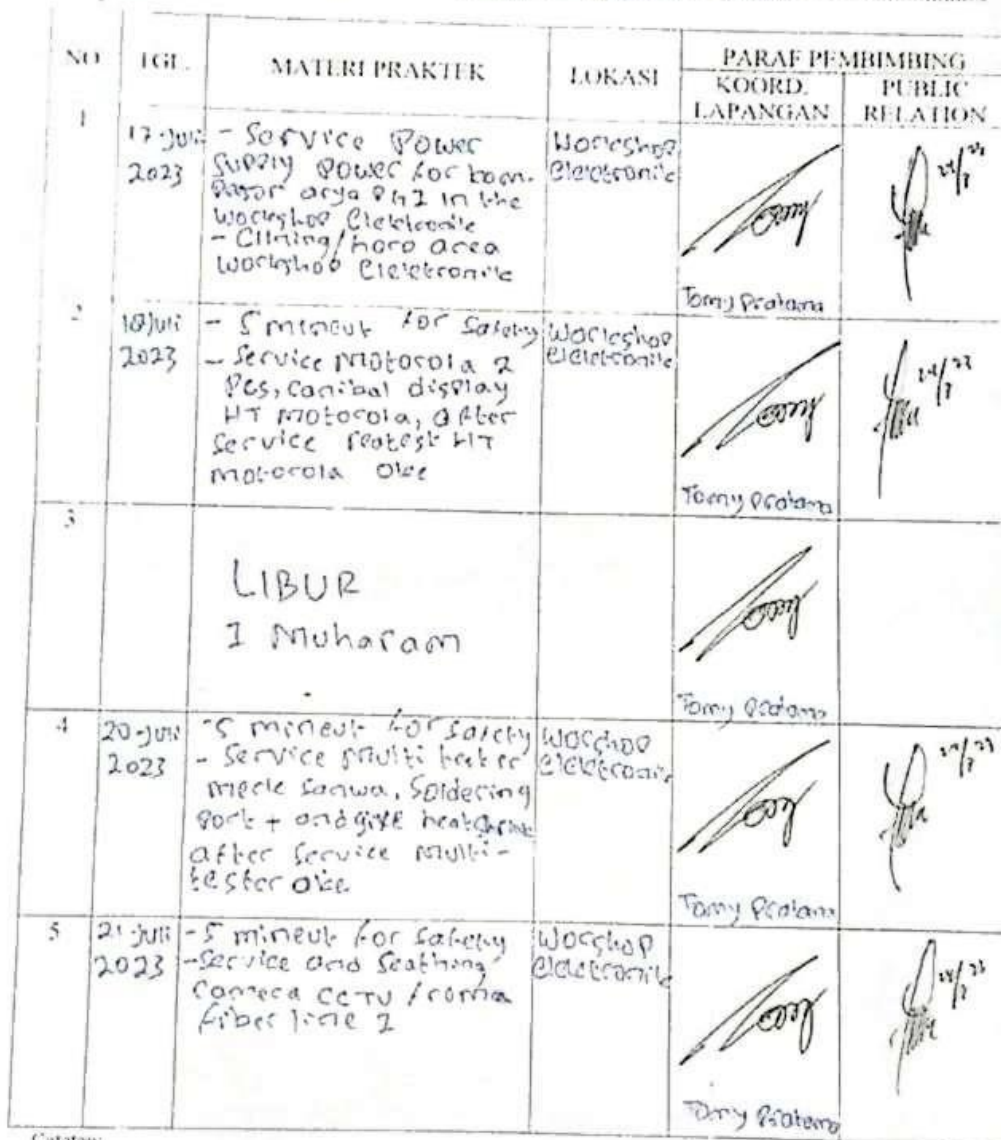 NO TGL. MATERI PRAKTEK LOKASI PARAF PEMBIMBING
KOORD. LAPANGAN PUBLIC RELATION
1
17-Juli 2023
- Service Power
Supply Power for
in the
Workshop Elektronik
area
Workshop Elektronik
Workshop
Elektronik
Tomy Pratama
2
18 Juli 2023
- 5 mineut for Safety
- Service Motorola 2
Pcs, canibal display
HT Motorola, after
Service HT
Motorola oke
Workshop
Elektronik
Tomy Pratama
3
LIBUR
1 Muharam
Tomy Pratama
4
20-Juli 2023
- 5 mineut for Safety
- Service Multi tester
merk Sanwa, Soldering
port + and give heatshrink
after Service Multi-
tester oke
Worshop
Elektronik
Tomy Pratama
5
21-Juli 2023
- 5 mineut for Safety
- Service and Seathing
Camera CCTV
fiber line 2
Worshop
Elektronik
Tomy Pratama